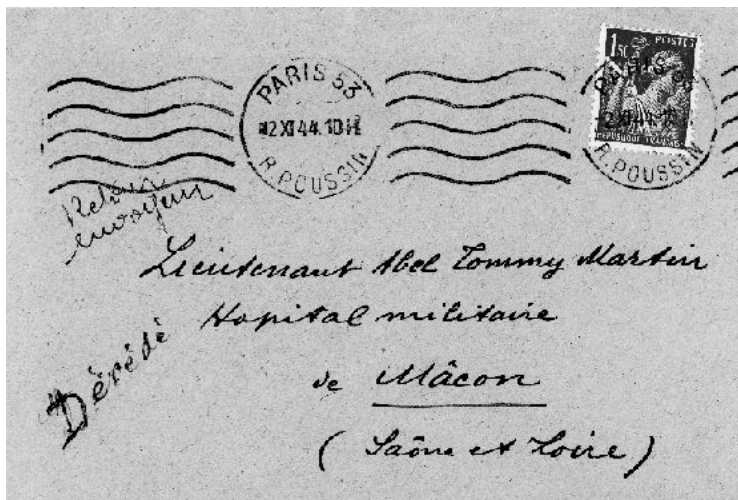 PARIS 53
12 XI 44. 10H
R. POUSSIN
1,50
POSTES
REPUBLIQUE FRANÇAISE
R. POUSSIN
Retour
envoyeur
Lieutenant Abel Tommy Martin
Hopital militaire
Dérédé
de Mâcon
(Saône et Loire)